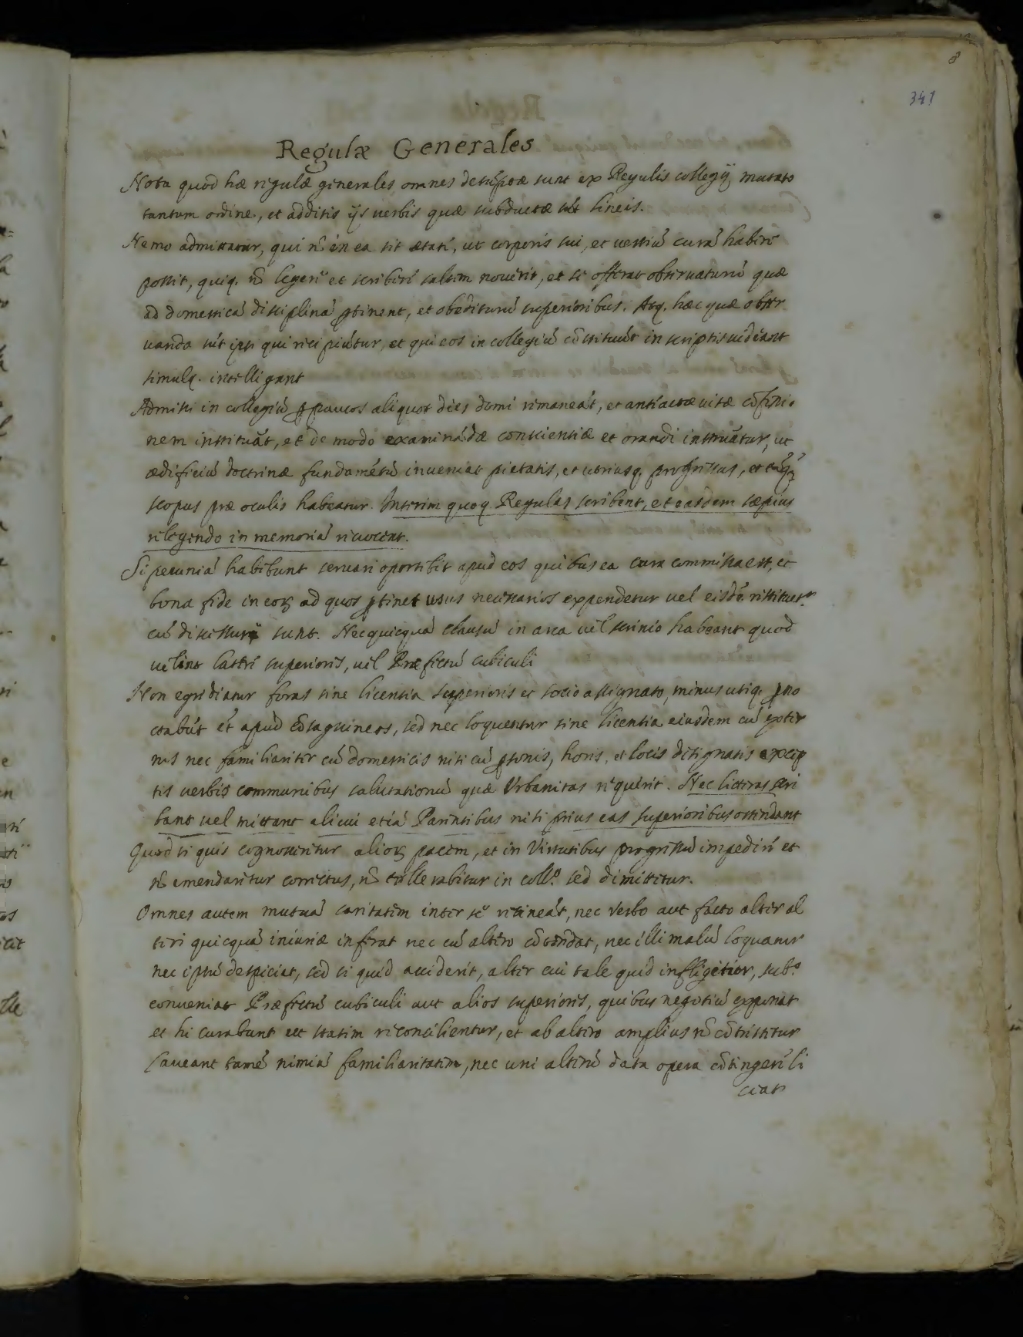 8
341
Regulæ Generales
Nota quod hæ regulæ generales omnes desumptæ sunt ex Regulis collegij mutato
tantum ordine, et additis ijs verbis quæ subductæ sūt lineis.
Nemo admittatur, qui nō in ea sit ætate, ut corporis sui, et vestiū curā habere
possit, quiq. nō legere et scribere saltem noverit, et se offerat observaturū quæ
ad domesticā disciplinā ꝑtinent, et obediturū superioribus. Atq. hæc quæ obser
vanda sūt ipsi qui recipiūtur, et qui eos in collegiū cōstituūt in scriptis videant
simulq. intelligant
Admissi in collegiū ꝑ paucos aliquot dies domi remaneāt, et anteactæ vitæ cōfessio
nem instituāt, et de modo examinādæ conscientiæ et orandi instruātur, ut
ædificiū doctrinæ fundamētū inveniat pietatis, et utriusq. progressus, et
scopus præ oculis habeatur. Interim quoq. Regulas scribent, et easdem sæpius
relegendo in memoriā revocent.
Si pecuniā habebunt servari oportebit apud eos quibus ea cura commissa est, et
bona fide in eoꝝ ad quos ꝑtinet usus necessarios expendetur vel eisdē restituet.r
cū discessuri sunt. Nec quicquā clausū in arca vel scrinio habeant quod
velint lateri superioris, vel Præfectū cubiculi
Non egrediatur foras sine licentia superioris et socio assignato, minus utiq. ꝑno
ctabūt et apud cōsaguineos, sed nec loquentur sine licentia eiusdem cū exter
nis nec familiariter cū domesticis nisi cū ꝑsonis, horis, et locis designatis excep
tis verbis communibus salutationū quæ Urbanitas requirit. Nec litteras scri
bant vel mittant alicui etiā Parentibus nisi prius eas superioribus ostendant
Quod si quis cognoscetur alioꝝ pacem, et in Virtutibus progressū impedire et
nō emendaretur correctus, nō tollerabitur in coll.o sed dimittetur.
Omnes autem mutuā caritatem inter se retineāt, nec verbo aut facto alter al
teri quicquā iniuriæ inferat nec cū altero cōtendat, nec illi malū loquatur
nec ipsū despiciat, sed si quid acciderit, alter cui tale quid infligetur, sub.o
conveniat Præfectū cubiculi aut alios superioris, quibus negotiū exponat
et hi curabunt ut statim reconcilientur, et ab altero amplius nō cōtristetur
Caveant tamē nimiā familiaritatem, nec uni alterū data opera cōtingere li
ceat